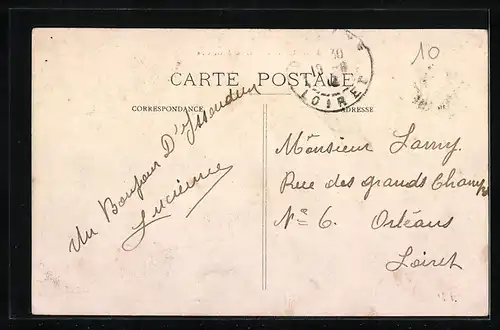 10
30
LOIRET
CARTE POSTALE
CORRESPONDANCE
ADRESSE
Un Bonjour D'Issoudun
Lucienne
Monsieur Larry.
Rue des grands Champs
N° 6. Orléans
Loiret